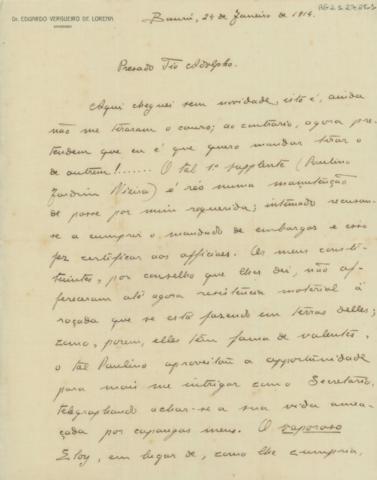 Dr. EDUARDO VERGUEIRO DE LORENA
ADVOGADO
Baurú, 24 de Janeiro de 1914.
Presado Tio Adolpho.
Aqui cheguei sem novidade, isto é, ainda
não me tiraram o couro; ao contrario, agora pre-
tendem que eu é que quero mandar tirar o
de outrem!......... O tal 1º supplente (Paulino
Jardim Vieira) é réo numa manutenção
de posse por mim requerida; intimado recusou-
se a cumprir o mandado de embargos e isso
fez certificar aos officiaes. Os meus consti-
tuintes, por conselho que lhes dei, não of-
fereceram até agora resistencia material á
roçada que se está fazendo em terras delles;
como, porem, elles têm fama de valentes,
o tal Paulino aproveitou a opportunidade
para mais me intrigar com o Secretario,
telegraphando achar-se a sua vida amea-
çada por capangas meus. O vaporoso
Eloy, em lugar de, como lhe cumpria,